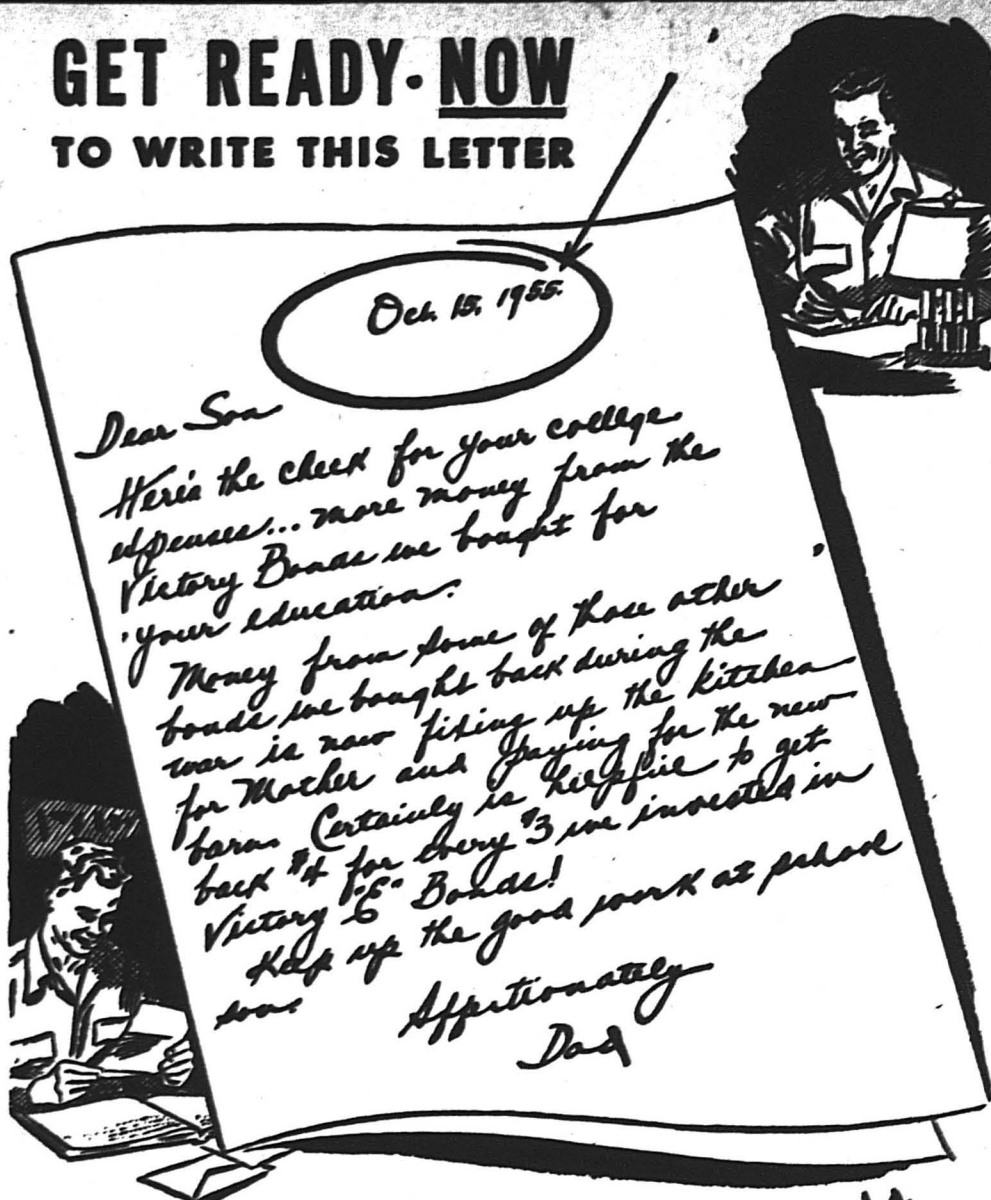 GET READY · NOW
TO WRITE THIS LETTER
Oct. 15, 1955.
Dear Son
Here's the check for your college
expenses... more money from the
Victory Bonds we bought for
your education.
Money from some of those other
bonds we bought back during the
war is now fixing up the kitchen
for Mother and paying for the new
barn. Certainly is helpful to get
back $4 for every $3 we invested in
Victory "E" Bonds!
Keep up the good work at school
son.
Affectionately
Dad